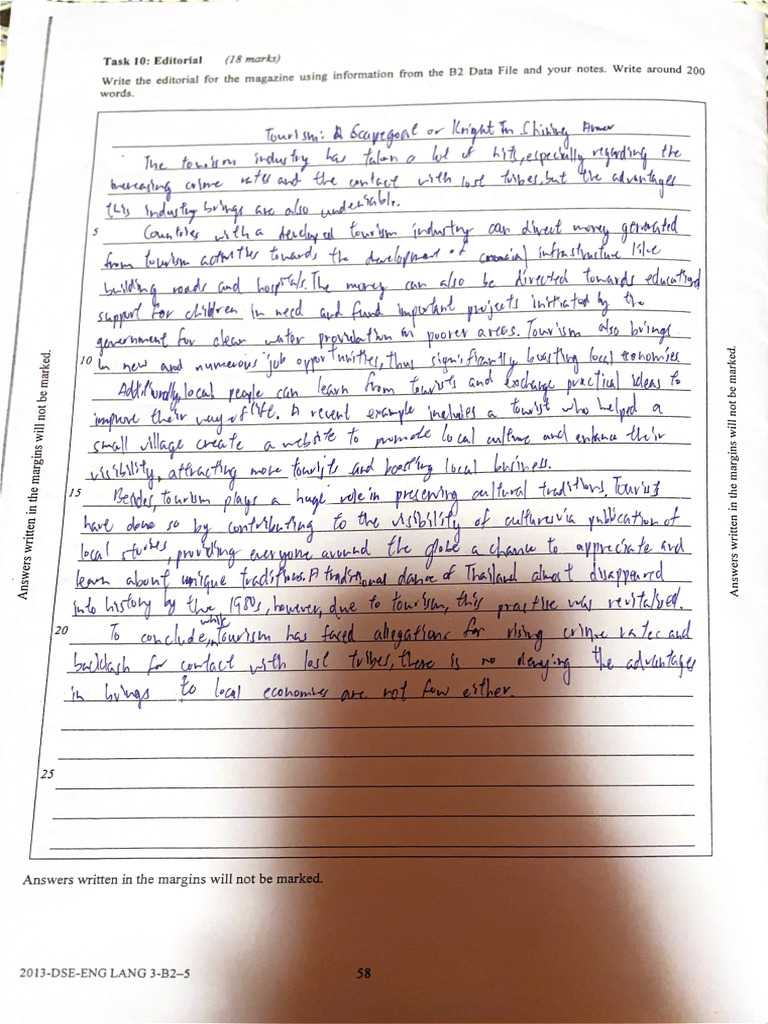 Task 10: Editorial (18 marks)
Write the editorial for the magazine using information from the B2 Data File and your notes. Write around 200
words.
Tourism: A Scapegoat or Knight In Shining Armor
The tourism industry has taken a lot of hits, especially regarding the
increasing crime rates and the contact with lost tribes, but the advantages
this industry brings are also undeniable.
5 Countries with a developed tourism industry can direct money generated
from tourism activities towards the development of infrastructure like
building roads and hospitals. The money can also be directed towards educational
support for children in need and fund important projects initiated by the
government for clean water in poorer areas. Tourism also brings
10 in new and numerous job opportunities, thus significantly boosting local economies
Additionally, local people can learn from tourists and exchange practical ideas to
improve their way of life. A recent example includes a tourist who helped a
small village create a website to promote local culture and enhance their
visibility, attracting more tourists and boosting local business.
15 Besides, tourism plays a huge role in preserving cultural traditions. Tourists
have done so by contributing to the visibility of cultures via publication of
local studies, providing everyone around the globe a chance to appreciate and
learn about unique traditions. A traditional dance of Thailand almost disappeared
into history by the 1980s, however, due to tourism, this practise was revitalised.
20 To conclude, while tourism has faced allegations for rising crime rates and
backlash for contact with lost tribes, there is no denying the advantages
in brings to local economies are not few either.
25
Answers written in the margins will not be marked.
Answers written in the margins will not be marked.
Answers written in the margins will not be marked.
2013-DSE-ENG LANG 3-B2–5 58